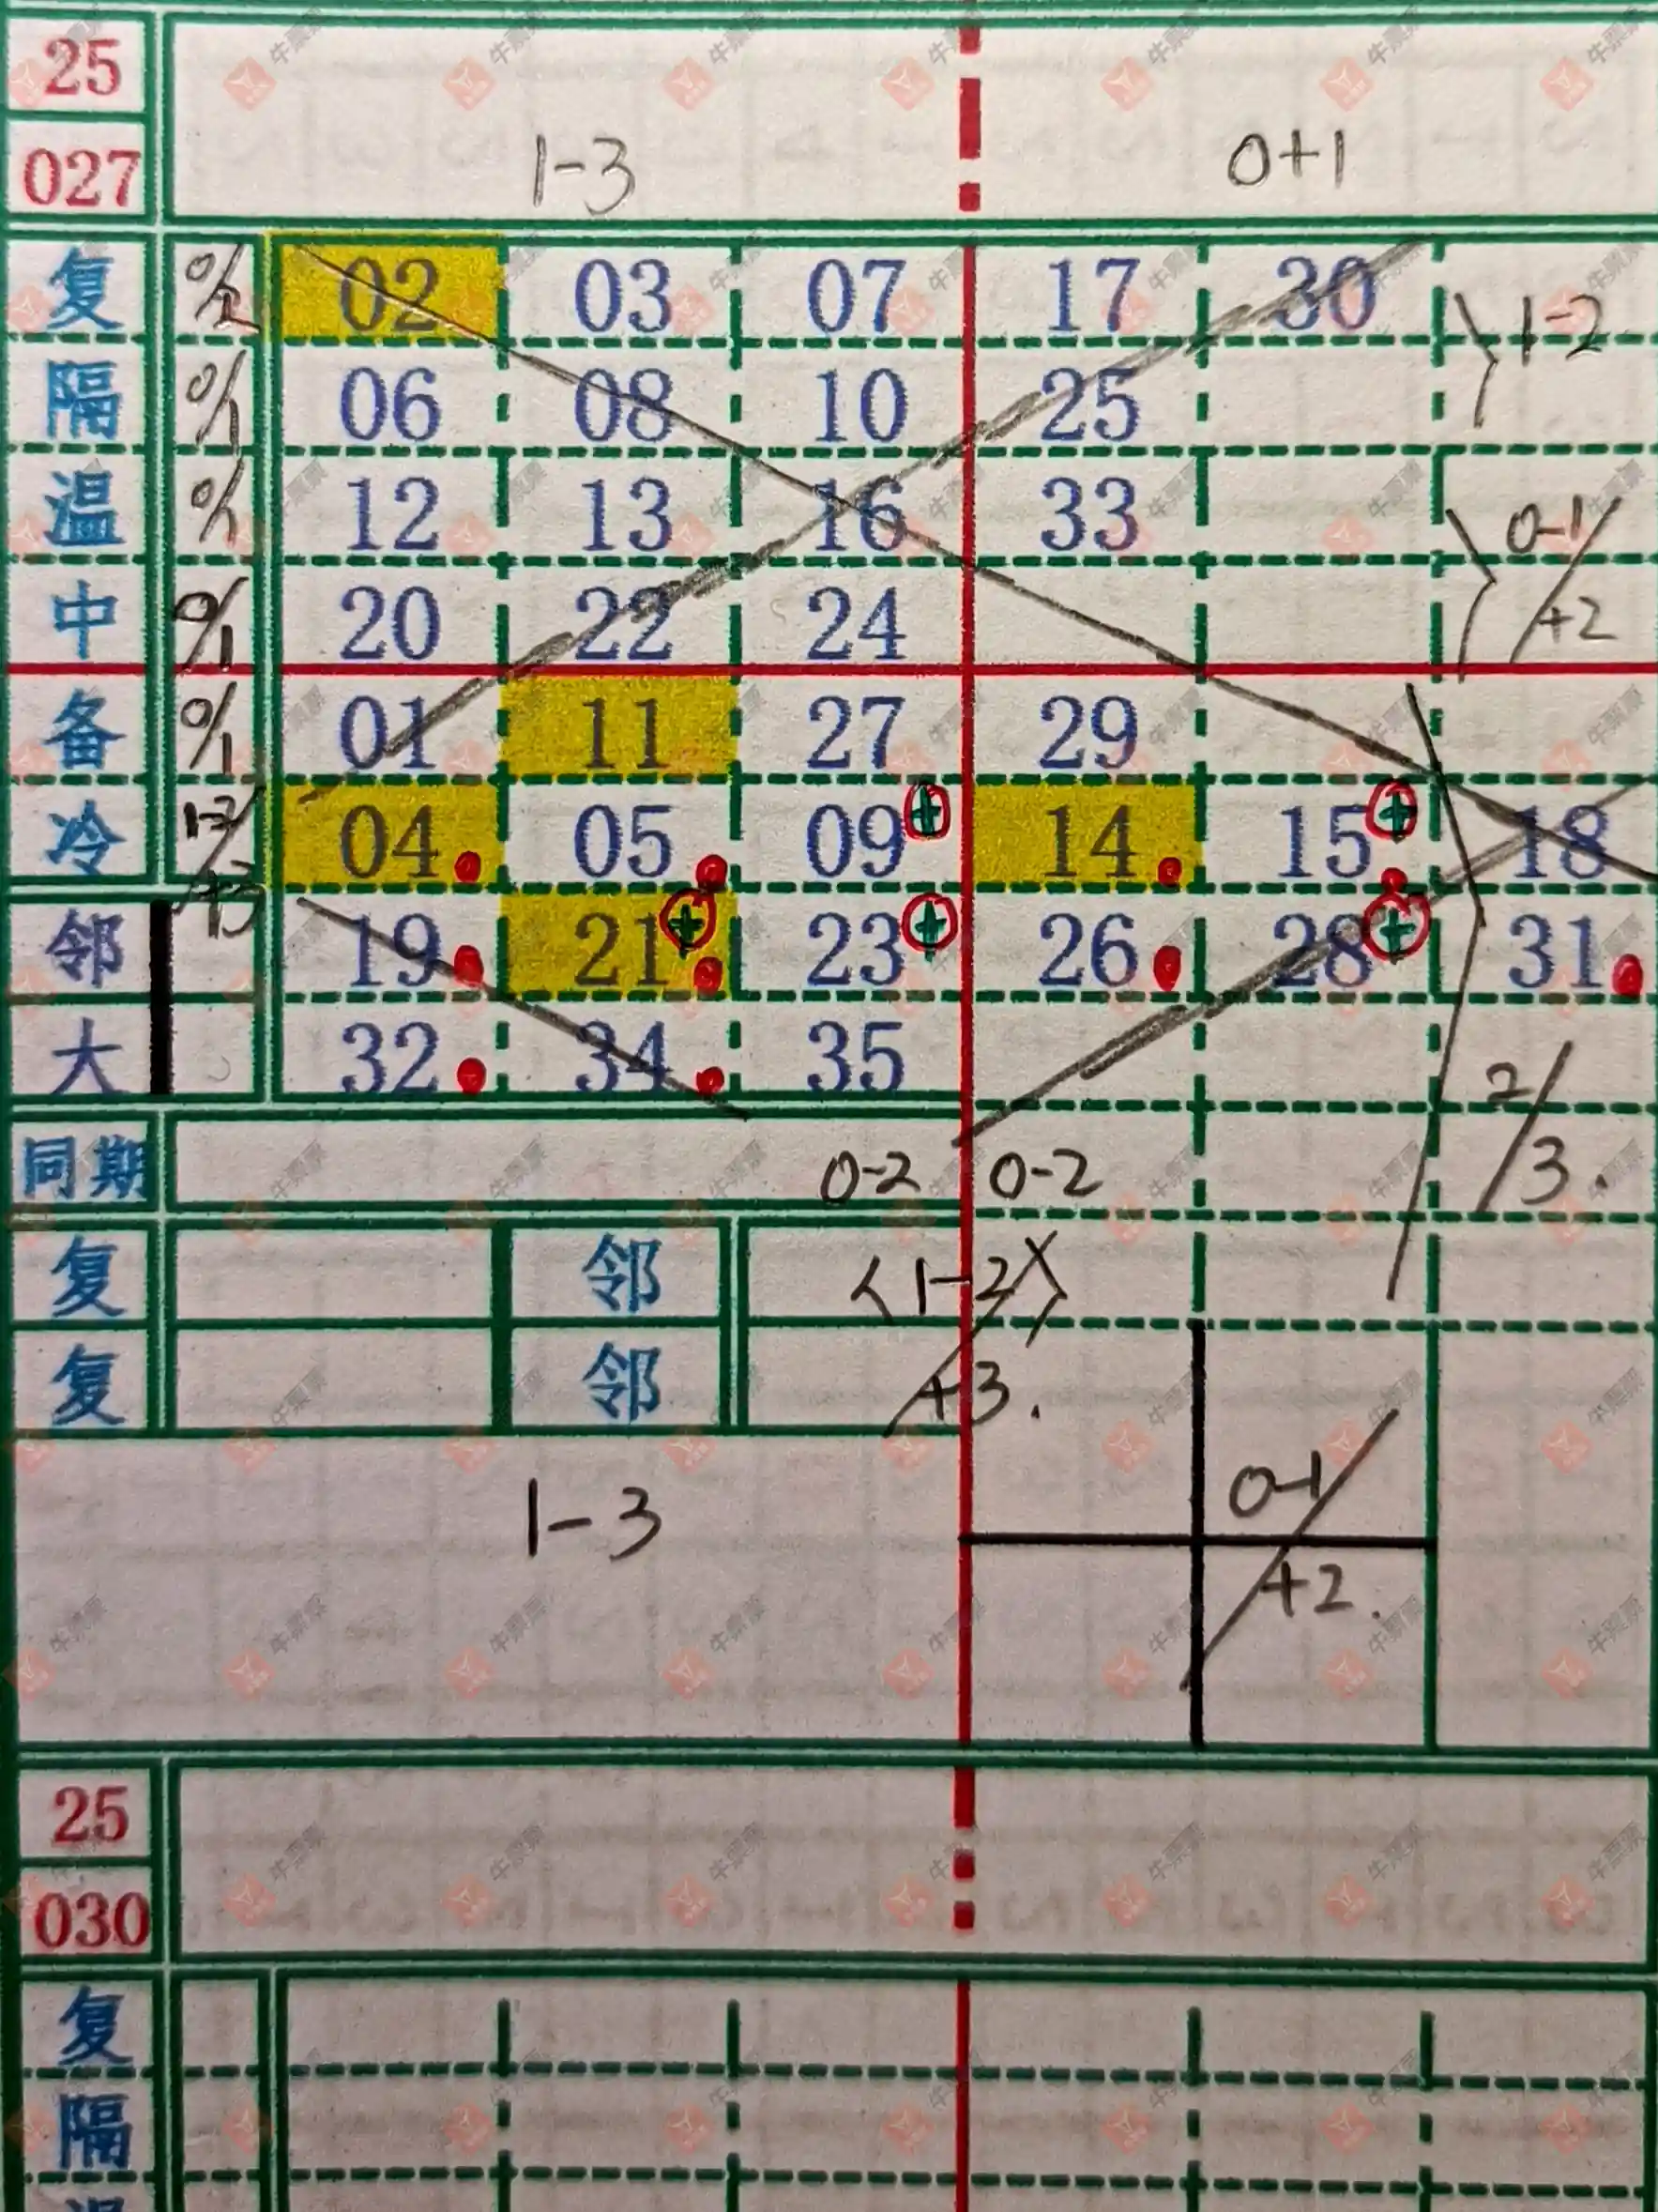 25
027 1-3 0+1
复 0/1 02 03 07 17 30 1-2
隔 0/1 06 08 10 25
温 0/1 12 13 16 33 0-1/+2
中 0/1 20 22 24
备 0/1 01 11 27 29
冷 04 05 09 + 14 15 + 18
邻 19 21 + 23 + 26 28 + 31
大 32 34 35 2/3.
同期 0-2 0-2
复 邻 <1-2>
复 邻 /+3.
1-3 0-1/+2.
25
030
复
隔
温
牛票票